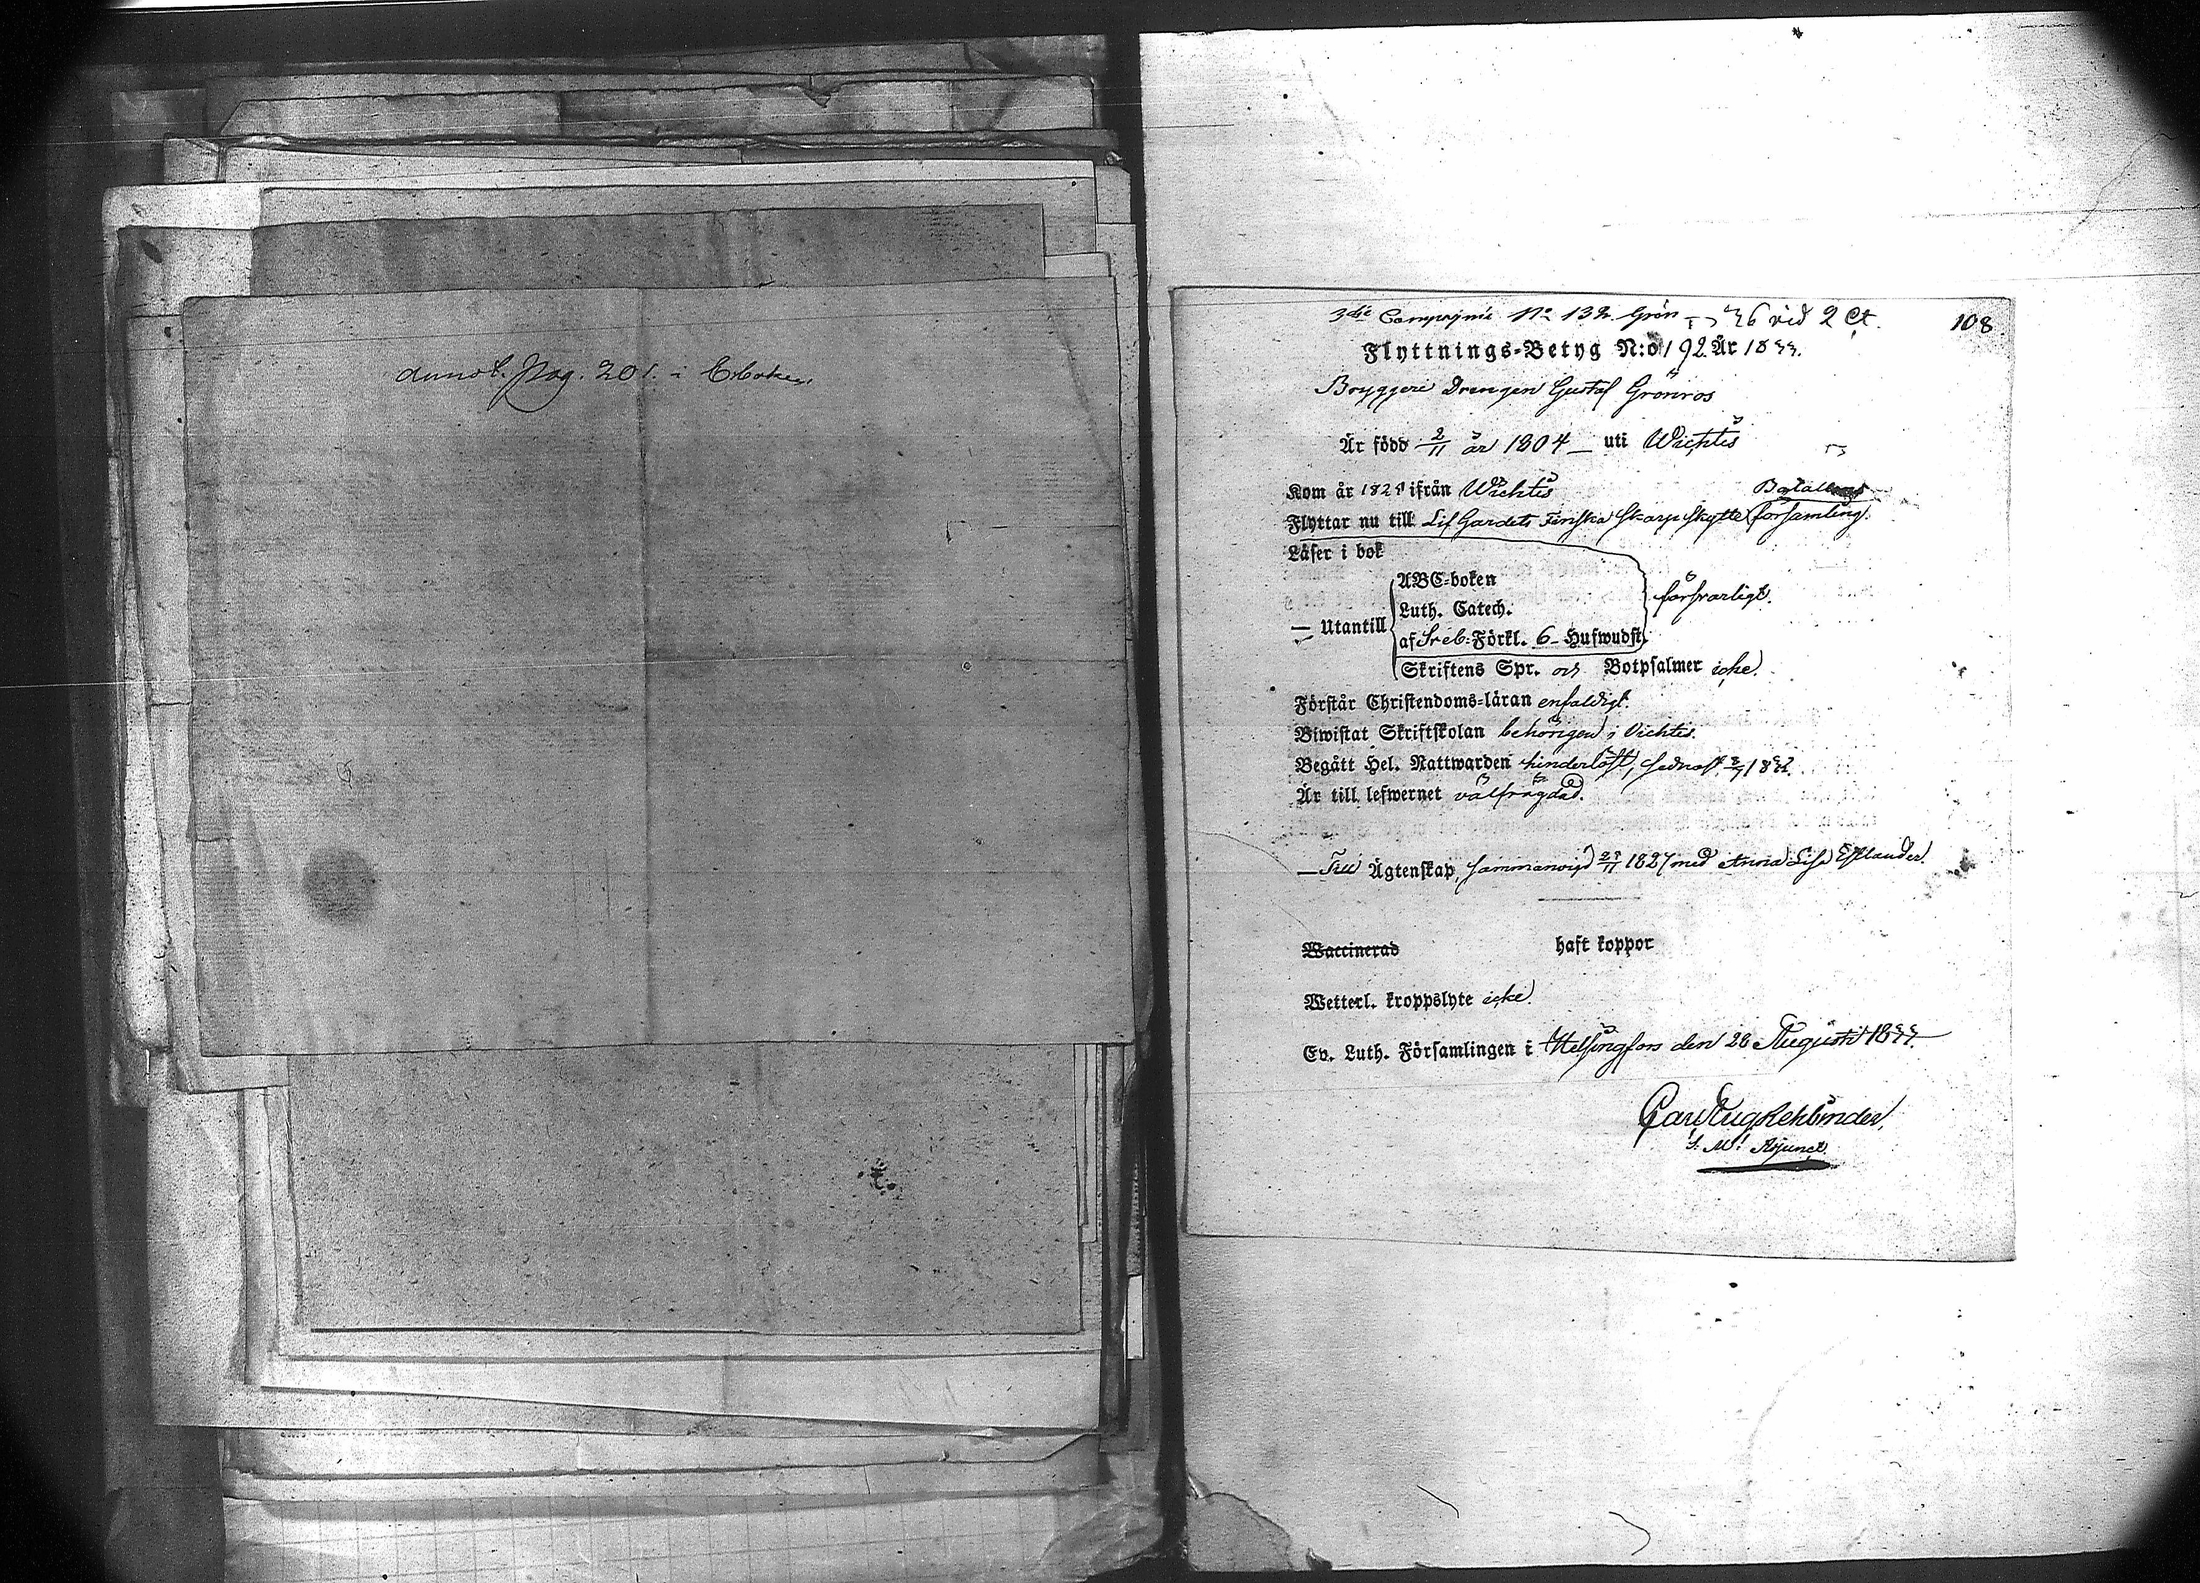 annot. pag. 201. i
3die Compagnie No 132. Grön 36 vid 2 Ct.
108.
Flyttnings-Betyg N:o 192. År 1833.
Bryggeri Drengen Gustaf Grönros
Är född 2/11 år 1804 — uti Wichtis
Kom år 1828 ifrån Wichtis
Bataillons
Flyttar nu till Lif Gardets Finska Skarpskytte församling.
Läser i bok
ABC-boken
Luth. Catech.
försvarligt.
— Utantill
af Sveb: Förkl. 6 Hufwudst.
Skriftens Spr. och Botpsalmer icke.
Förstår Christendoms-läran enfaldigt.
Biwistat Skriftskolan behörigen i Vichtis.
Begått Hel. Nattwarden hinderlöst, sednast 1833.
Är till lefwernet välfrägdad.
— Till Ägtenskap, sammanvigd 1827 med Anna Lisa Estlander.
Waccinerad haft koppor
Wetterl. kroppslyte icke.
Ev. Luth. Församlingen i Helsingfors den 28 Augusti 1833.
Carl Aug Rehbinder,
S. M. Adjunct.